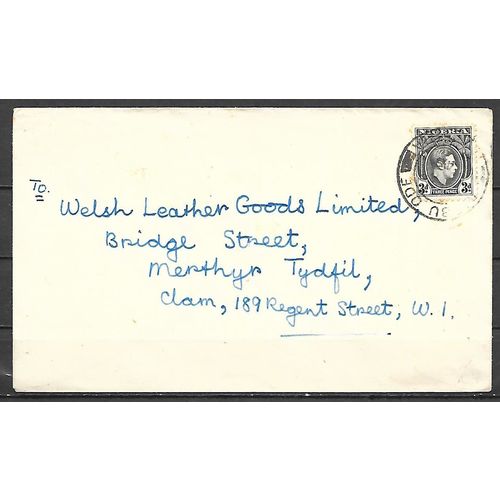 NIGERIA
3d THREE PENCE 3d
BU ODE
To.
Welsh Leather Goods Limited,
Bridge Street,
Merthyr Tydfil,
Glam, 189 Regent Street, W.1.